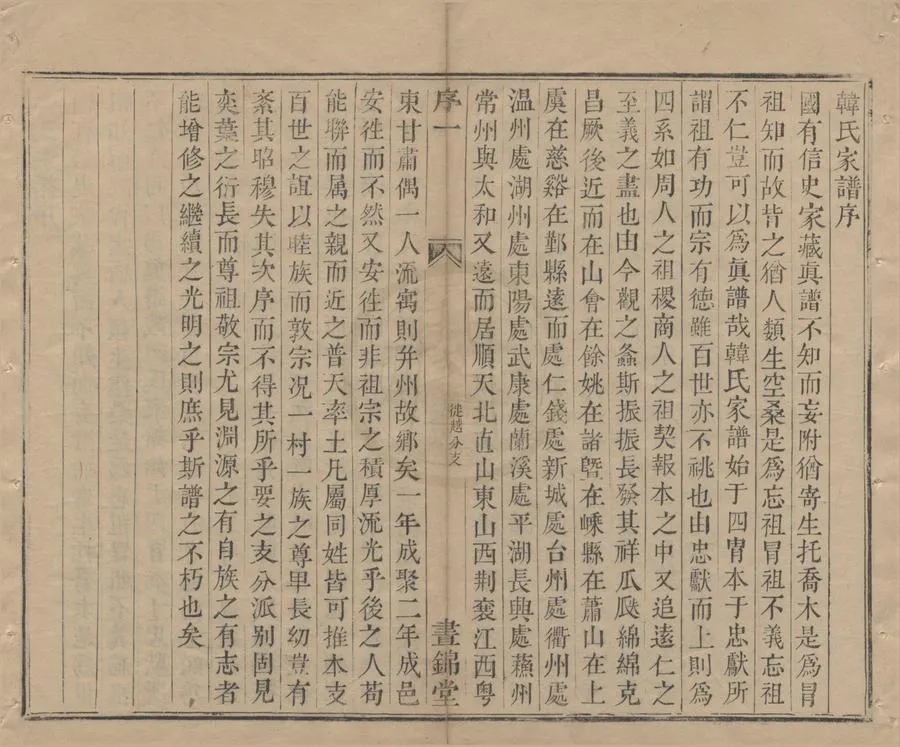 韓氏家譜序
國有信史家藏眞譜不知而妄附猶寄生托喬木是爲冒
祖知而故背之猶人類生空桑是爲忘祖冒祖不義忘祖
不仁豈可以爲眞譜哉韓氏家譜始于四胄本于忠獻所
謂祖有功而宗有徳雖百世亦不祧也由忠獻而上則爲
四系如周人之祖稷商人之祖契報本之中又追遠仁之
至義之盡也由今觀之螽斯振振長發其祥瓜瓞綿綿克
昌厥後近而在山會在餘姚在諸曁在嵊縣在蕭山在上
虞在慈谿在鄞縣遠而處仁錢處新城處台州處衢州處
温州處湖州處東陽處武康處蘭溪處平湖長興處蘓州
常州與太和又遠而居順天北直山東山西荆襄江西粤
序一
徙越分支
晝錦堂
東甘肅偶一人流寓則并州故鄉矣一年成聚二年成邑
安徃而不然又安徃而非祖宗之積厚流光乎後之人苟
能聯而属之親而近之普天率土凡屬同姓皆可推本支
百世之誼以睦族而敦宗况一村一族之尊卑長幼豈有
紊其昭穆失其次序而不得其所乎要之支分派别固見
奕葉之衍長而尊祖敬宗尤見淵源之有自族之有志者
能增修之繼續之光明之則庶乎斯譜之不朽也矣